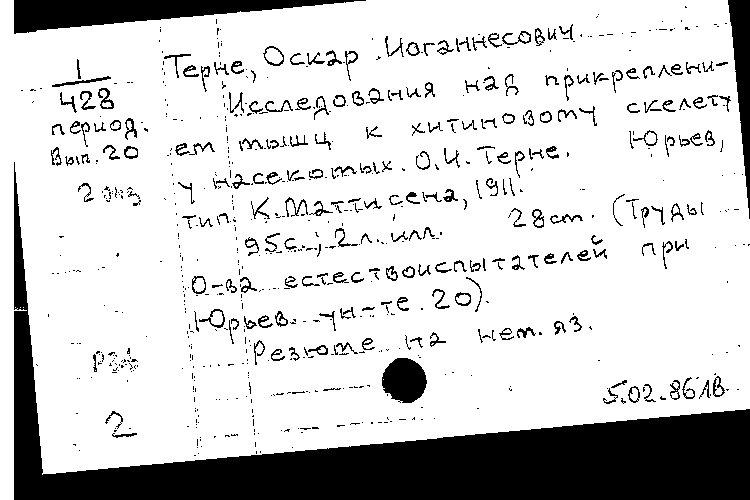 1
428
период.
Вып. 20
2 экз
Терне, Оскар Иоганнесович
Исследования над прикреплени-
ем мышц к хитиновому скелету
у насекомых. О.И. Терне. Юрьев,
тип. К. Маттисена, 1911.
95с.; 2л. илл. 28см. (Труды
О-ва естествоиспытателей при
Юрьев. ун-те. 20).
Резюме на нем. яз.
2
5.02.86